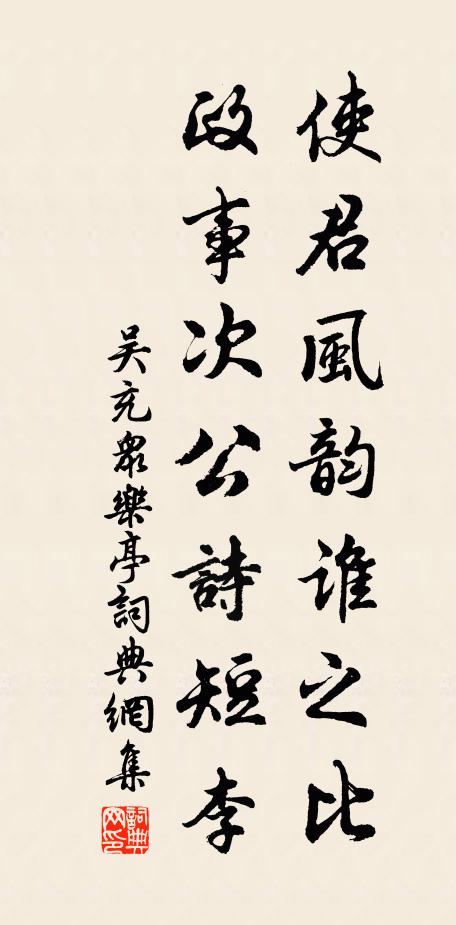 使君風韵谁之比
政事次公詩短李
吴充衆樂亭詞典網集
詞典网印